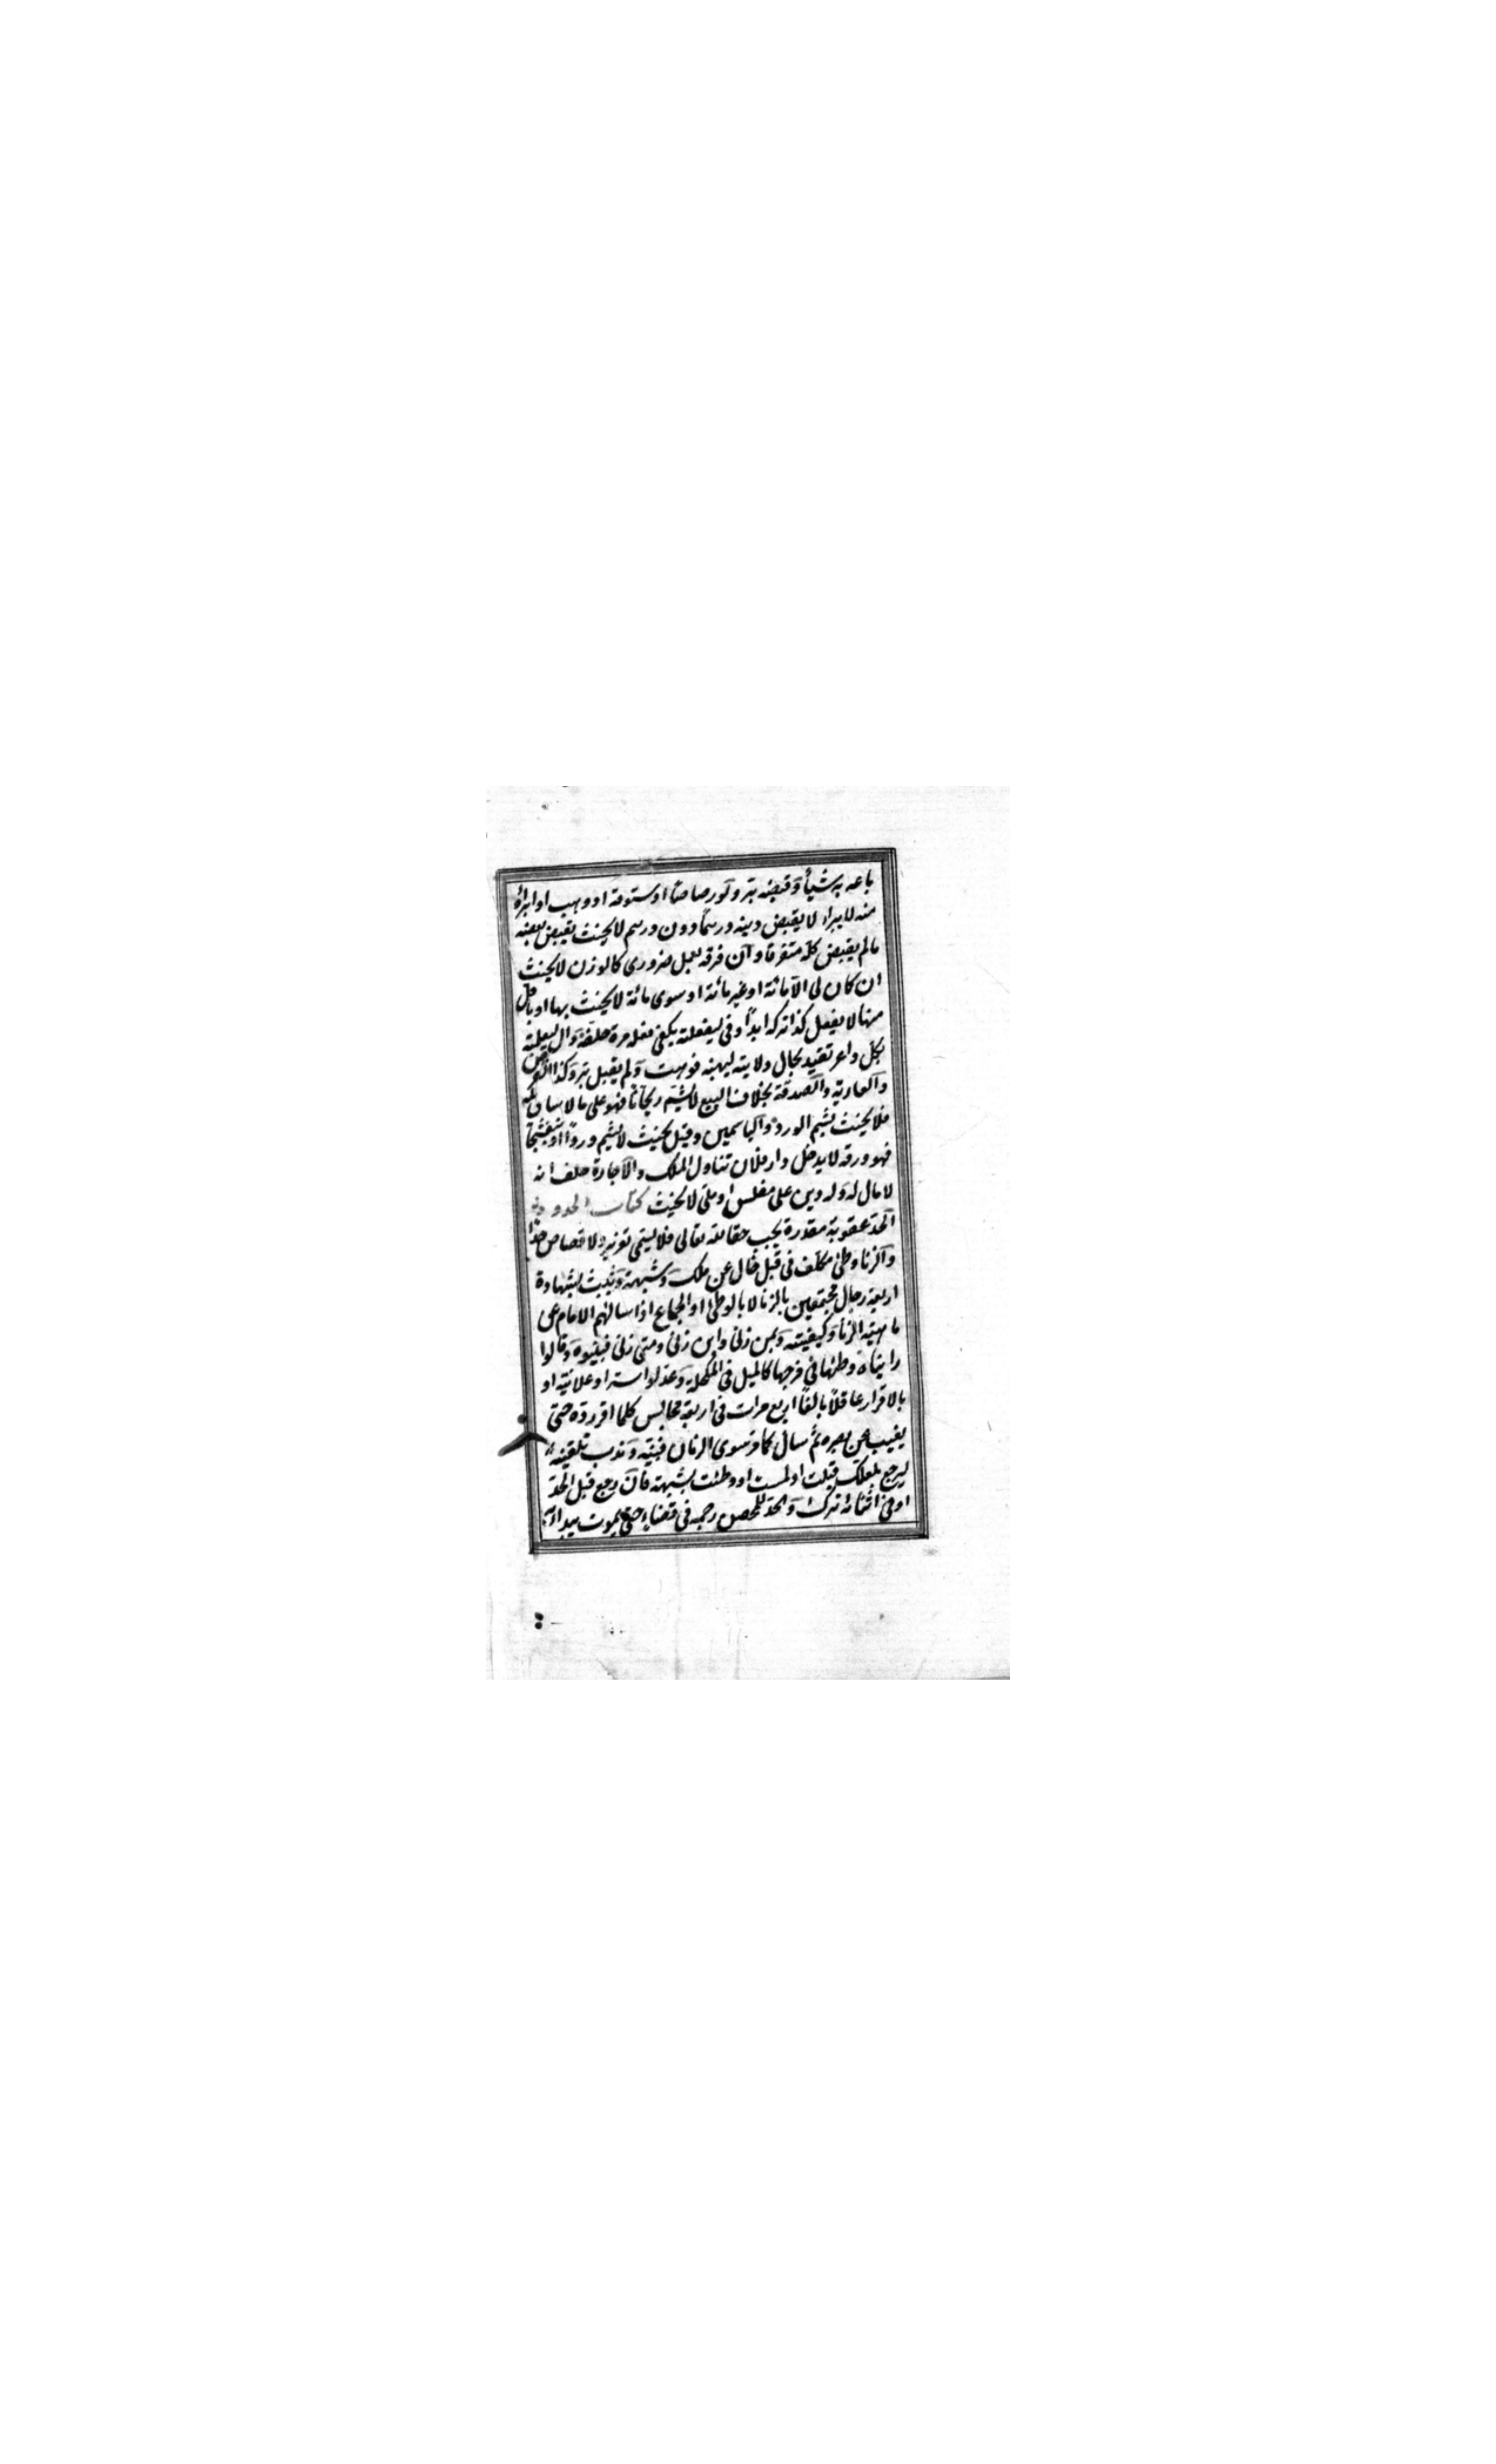 باعه به شيأ وقبضه بر ولو رصاصا او ستوقة او وهب او ابرأه
منه لا يبراء لا يقبض دينه درهما دون درهم لا يحنث بقبض بعضه
مالم يقبض كله متفرقا وان فرقه بعمل ضروري كالوزن لا يحنث
ان كان لى الا مائة او غير مائة او سوى مائة لا يحنث بها او باقل
منها لا يفعل كذا تركه ابدا وفى ليفعلنه يكفى فعله مرة حلفه وال ليعلمنه
بكل داعر تقيد بحال ولايته ليهبنه فوهبت ولم يقبل بر وكذا القرض
والعارية والصدقة بخلاف البيع لا يشم ريحانا فهو على مالا ساق له
فلا يحنث بشم الورد والياسمين وقيل يحنث لا يشم وردا او بنفسجا
فهو ورقه لا يدخل دار فلان تناول الملك والاجارة حلف انه
لا مال له وله دين على مفلس او ملى لا يحنث كتاب الحدود
الحد عقوبة مقدرة يجب حقا لله تعالى فلا يسمى تعزير ولا قصاص حدا
والزنا وطئ مكلف فى قبل خال عن ملك وشبهة ويثبت بشهادة
اربعة رجال مجتمعين بالزنا لا بالوطئ او الجماع اذا سالهم الامام عن
ماهية الزنا وكيفيته وبمن زنى واين زنى ومتى زنى فبينوه وقالوا
رايناه وطئها في فرجها كالميل فى المكحلة وعدلوا سرا وعلانية او
بالاقرار عاقلا بالغا اربع مرات فى اربعة مجالس كلما اقر رده حتى
يغيب عن بصره ثم سال كما مر سوى الزمان فبينه وندب تلقينه
ليرجع بلعلك قبلت او لمست او وطئت بشبهة فان رجع قبل الحد
او فى اثنائه ترك والحد للمحصن رجمه فى فضاء حتى يموت يبداء به